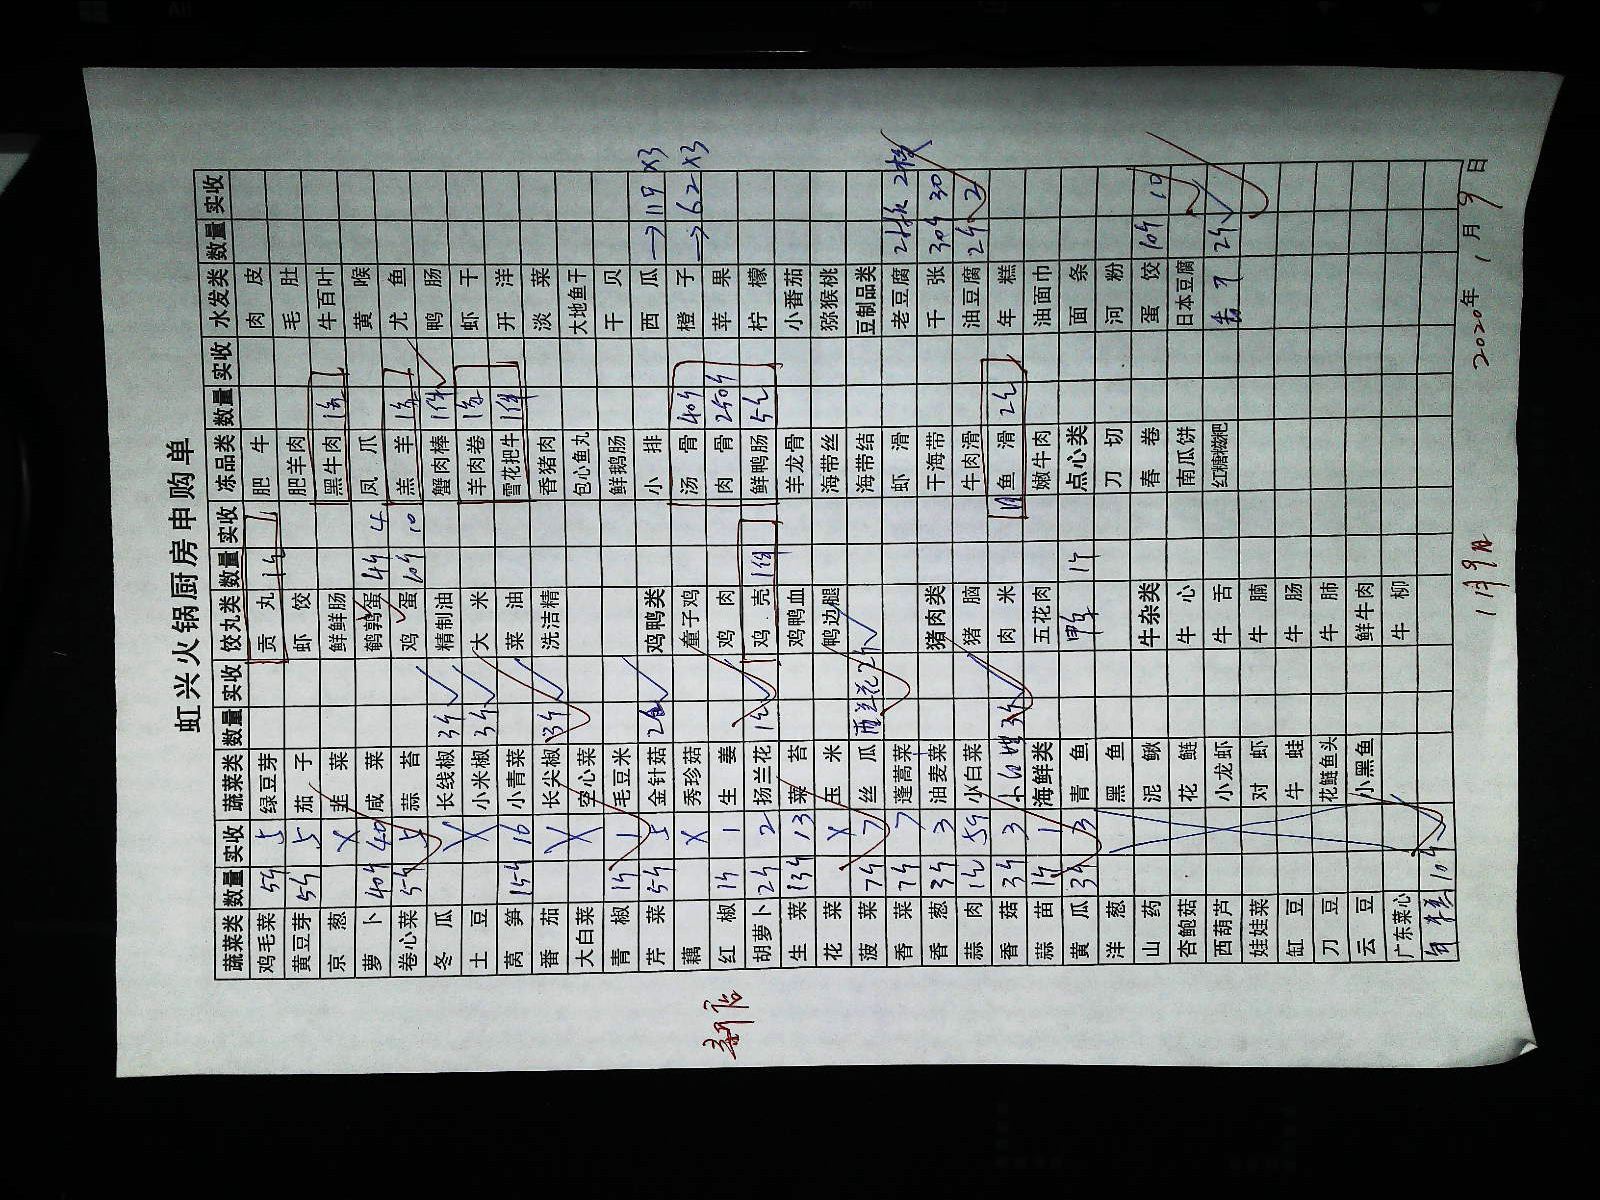 虹兴火锅厨房申购单
蔬菜类 数量 实收 蔬菜类 数量 实收 饺丸类 数量 实收 冻品类 数量 实收 水发类 数量 实收
鸡毛菜 5斤 5 绿豆芽 贡丸 肥牛 肉皮
黄豆芽 5斤 5 茄子 虾饺 肥羊肉 毛肚
京葱 X 韭菜 鲜鲜肠 黑牛肉 牛百叶
萝卜 40斤 40 咸菜 鹌鹑蛋 4斤 4 凤爪 黄喉
卷心菜 5斤 5 蒜苔 鸡蛋 10斤 10 羔羊 尤鱼
冬瓜 X 长线椒 3斤 精制油 蟹肉棒 1件 鸭肠
土豆 X 小米椒 3斤 大米 羊肉卷 虾干
莴笋 15斤 16 小青菜 菜油 雪花把牛 1件 开洋
番茄 X 长尖椒 3斤 洗洁精 香猪肉 淡菜
大白菜 X 空心菜 包心鱼丸 大地鱼干
青椒 1斤 1 毛豆米 鲜鹅肠 干贝
芹菜 5斤 5 金针菇 鸡鸭类 小排 西瓜 →119 X3
藕 X 秀珍菇 童子鸡 汤骨 40斤 橙子 →62 X3
红椒 1斤 1 生姜 鸡肉 肉骨 250斤 苹果
胡萝卜 2斤 2 扬兰花 鸡壳 1件 鲜鸭肠 柠檬
生菜 13斤 13 菜苔 鸡鸭血 羊龙骨 小番茄
花菜 X 玉米 鸭边腿 海带丝 猕猴桃
菠菜 7斤 7 丝瓜 西兰花 2斤 海带结 豆制品类
香菜 7斤 7 蓬蒿菜 虾滑 老豆腐 2板 2板
香葱 3斤 3 油麦菜 猪肉类 干海带 千张 30斤 30
蒜肉 59 小白菜 猪脑 牛肉滑 油豆腐 2斤 2
香菇 3斤 3 3斤 肉米 鱼滑 年糕
蒜苗 1斤 1 海鲜类 五花肉 嫩牛肉 油面巾
黄瓜 3斤 3 青鱼 1斤 点心类 面条
洋葱 黑鱼 刀切 河粉
山药 泥鳅 牛杂类 春卷 蛋饺 10斤 10
杏鲍菇 花鲢 牛心 南瓜饼 日本豆腐
西葫芦 小龙虾 牛舌 红糖糍粑 2斤
娃娃菜 对虾 牛腩
缸豆 牛蛙 牛肠
刀豆 花鲢鱼头 牛肺
云豆 小黑鱼 鲜牛肉
广东菜心 牛柳
10斤
新店
1月9日
2020年 1月 9日